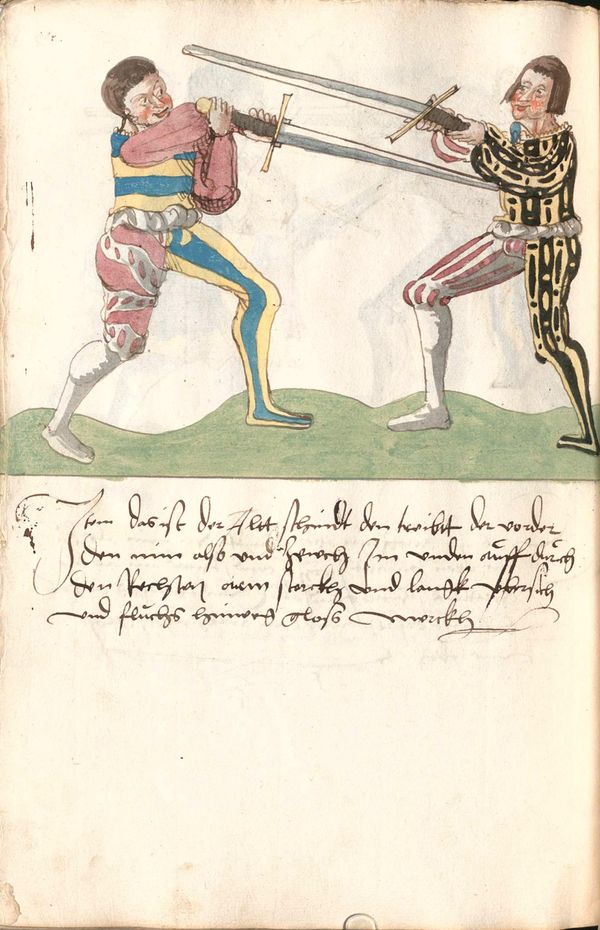 Item das ist der Alet schnidt den treibtt der vorder
den nim also und zewch Im unden auff durch
den Rechsten arm starckh und langk ubersich
und fluchs hinweg gloß merckh